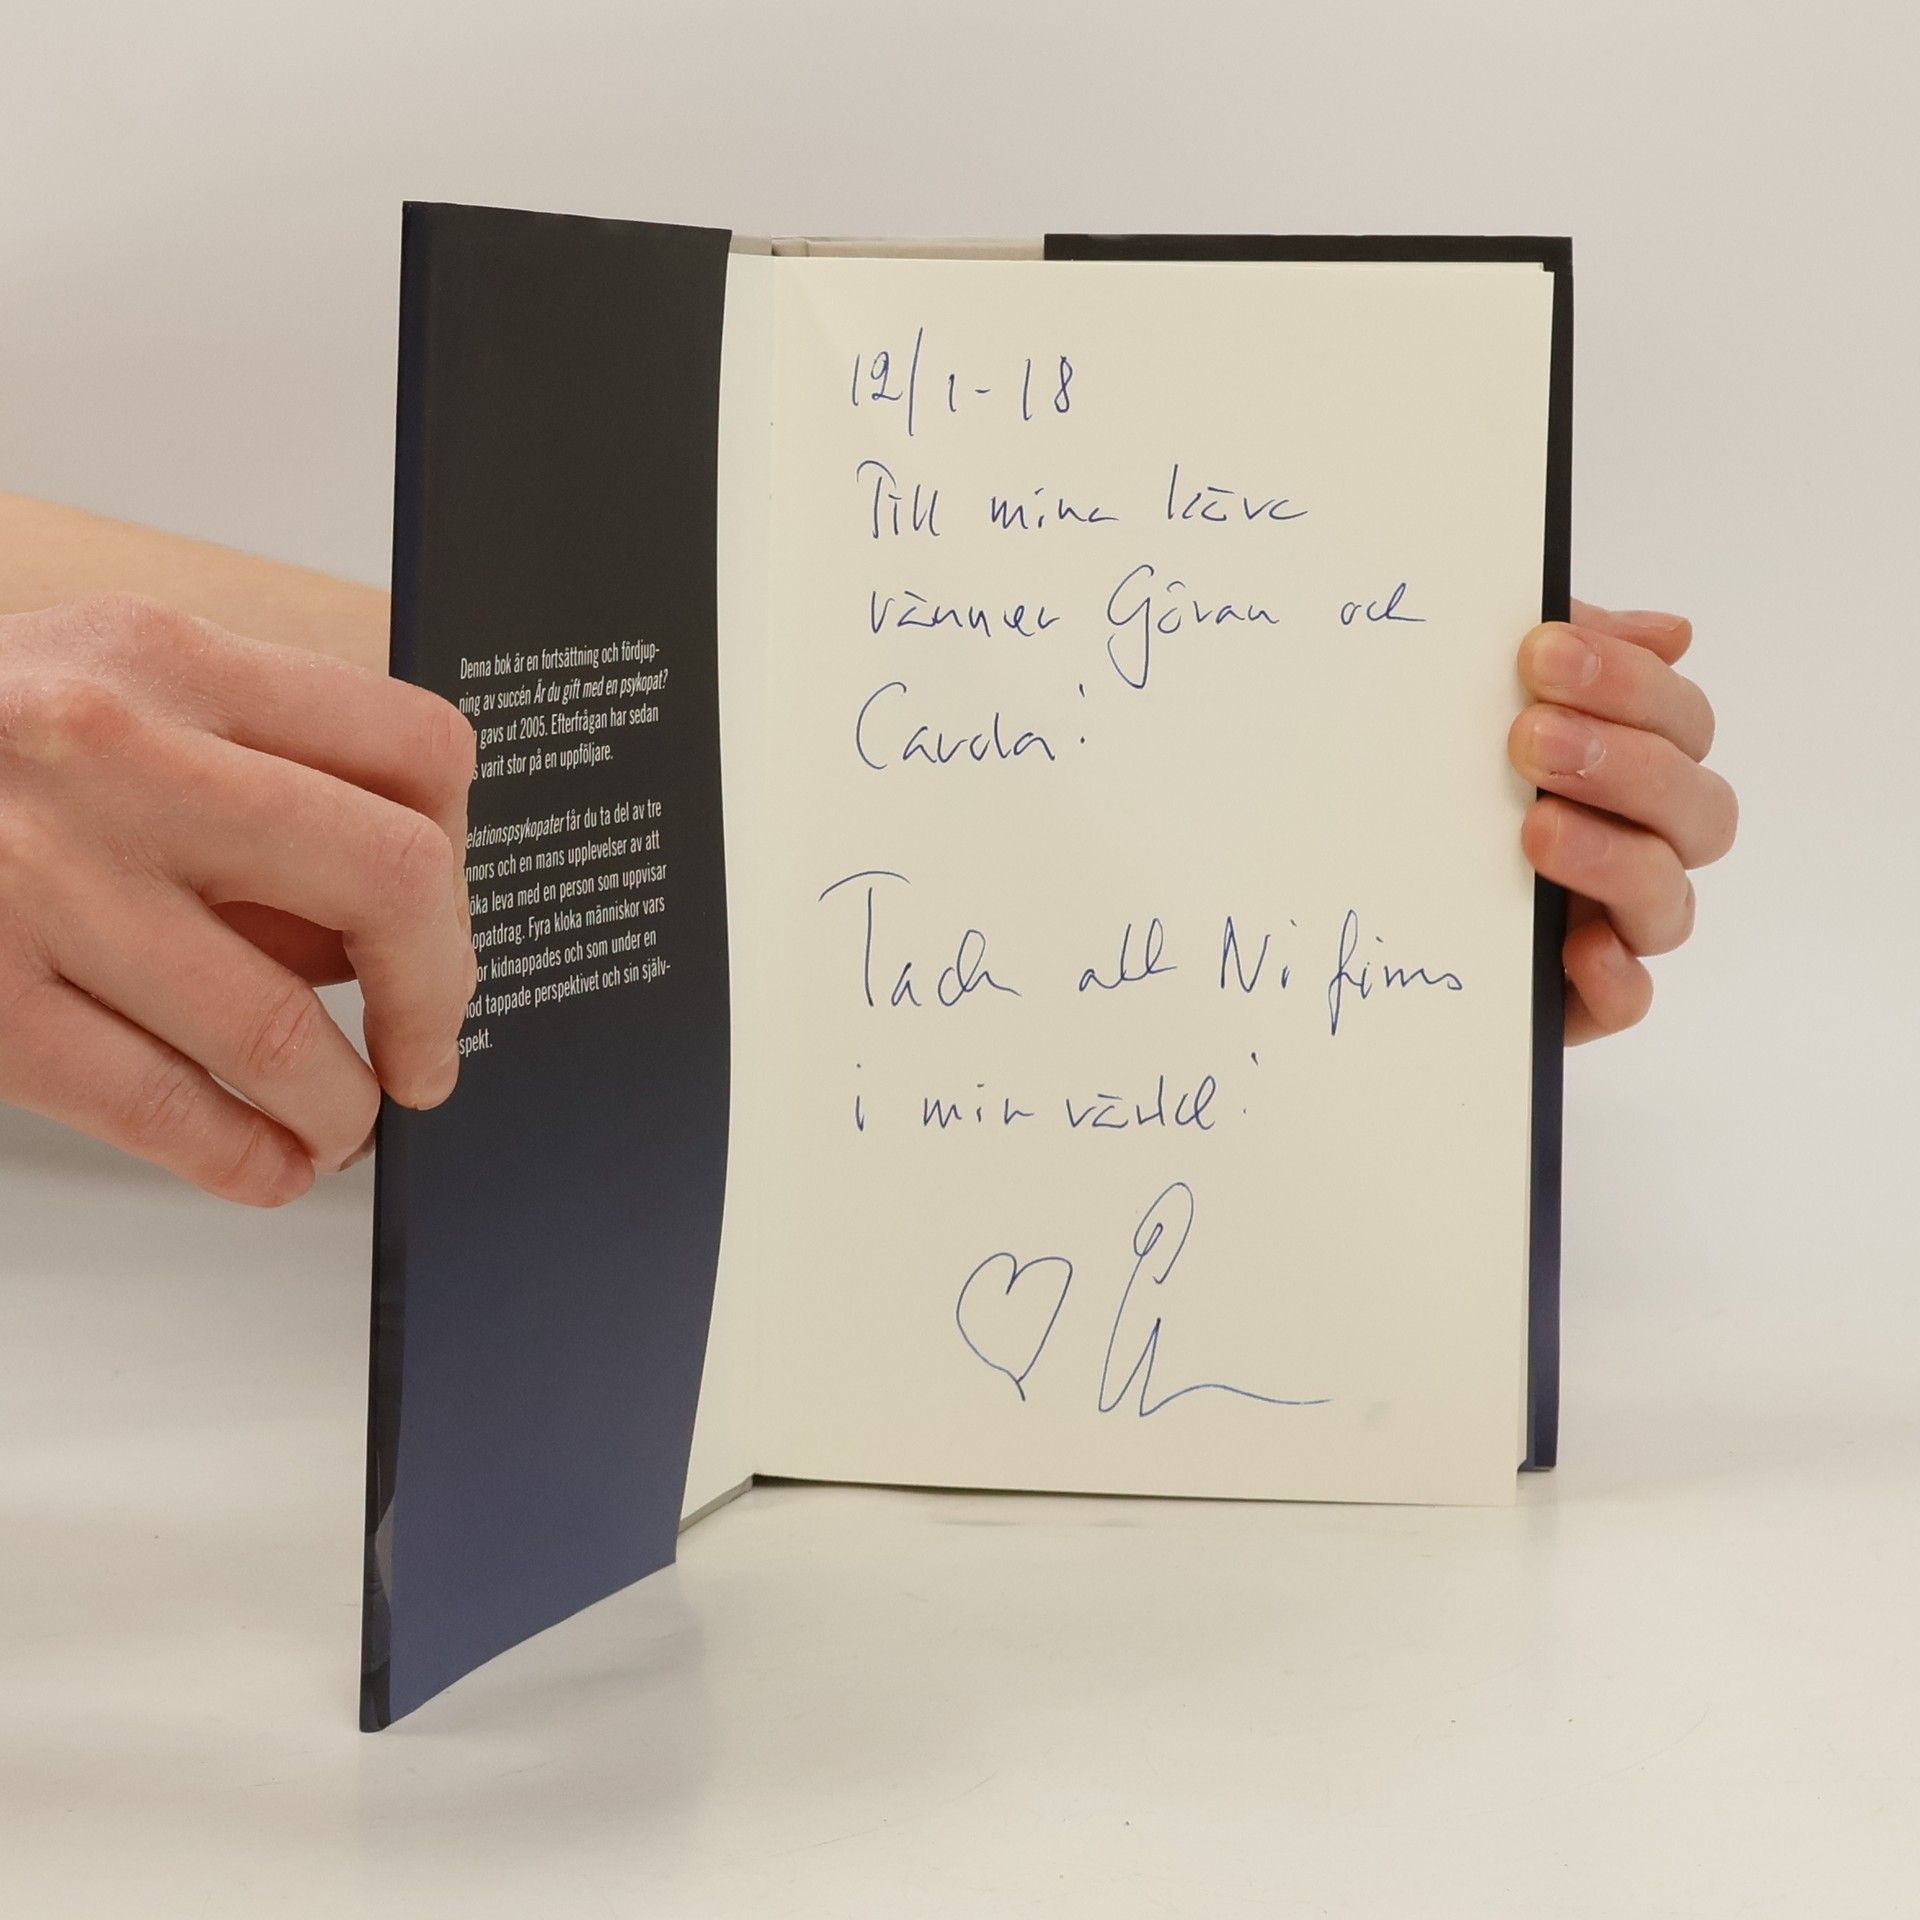 Denna bok är en fortsättning och fördjup-
ning av succén Är du gift med en psykopat?
gavs ut 2005. Efterfrågan har sedan
varit stor på en uppföljare.
elationspsykopater får du ta del av tre
nnors och en mans upplevelser av att
öka leva med en person som uppvisar
opatdrag. Fyra kloka människor vars
or kidnappades och som under en
od tappade perspektivet och sin själv-
spekt.
12/1-18
Till mina kära
vänner Göran och
Carola!
Tack att Ni finns
i min värld!